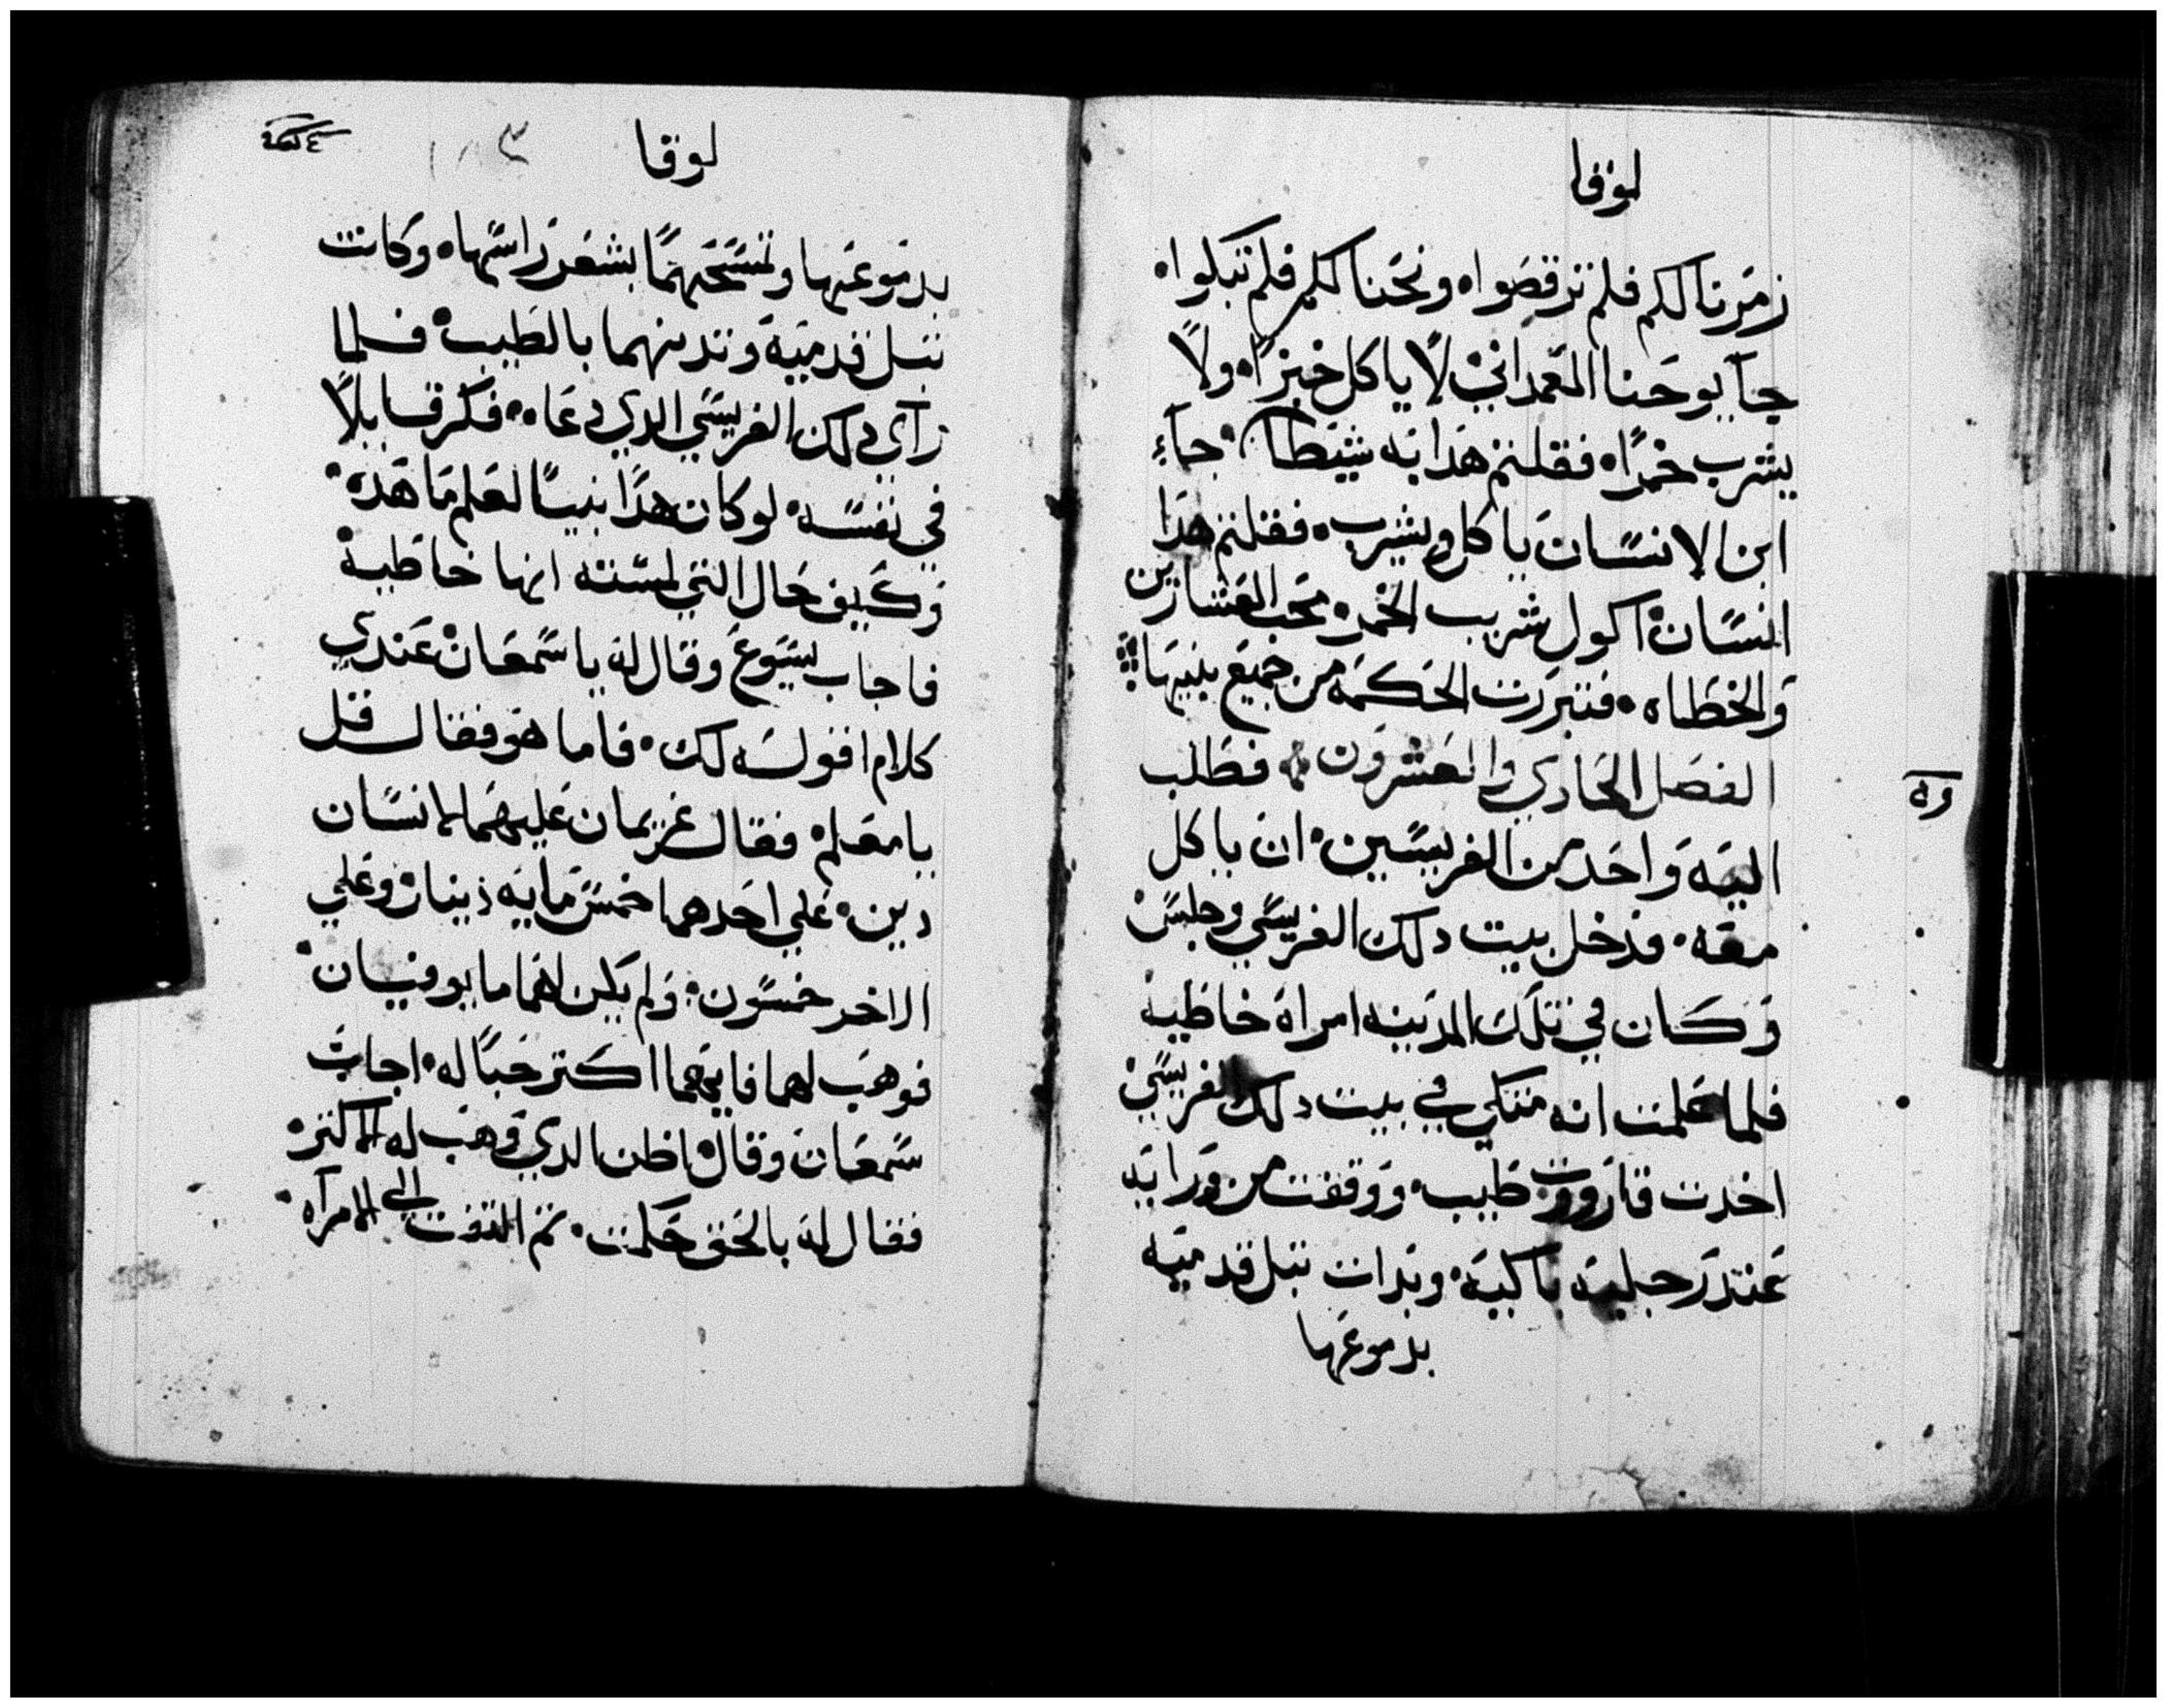 لوقا
زمرنا لكم فلم ترقصوا ونحنا لكم فلم تبكوا
جآ يوحنا المعمداني لا ياكل خبزًا ولا
يشرب خمرًا فقلتم هدا به شيطان جآء
ابن الانسان ياكل ويشرب فقلتم هدا
انسان اكول شريب الخمر محب العشارين
والخطاه فتبررت الحكمه من جميع بنيها
الفصل الحادي والعشرون فطلب
اليه واحد من الفريسين ان ياكل
معه فدخل بيت دلك الفريسي وجلس
وكان في تلك المدينه امراة خاطيه
فلما علمت انه متكي في بيت دلك الفريسي
اخدت قارورت طيب ووقفت من ورايه
عند رجليه باكيه وبدات تبل قدميه
بدموعها
لوقا
بدموعها وتمسحهما بشعر راسها وكانت
تبل قدميه وتدهنهما بالطيب فلما
راى دلك الفريسي الدي دعاه فكر قايلًا
في نفسه لو كان هدا نبيًا لعلم ما هده
وكيف حال التي لمسته انها خاطيه
فاجاب يسوع وقال له يا سمعان عندي
كلام اقوله لك فاما هو فقال قل
يا معلم فقال غريمان عليهما لانسان
دين علي احدهما خمس مايه دينار وعلي
الاخر خمسون ولم يكن لهما ما يوفيان
فوهب لهما فايهما اكتر حبًا له اجاب
سمعان وقال اظن الدي وهب له الاكتر
فقال له بالحق حكمت تم التفت الي الامرآه